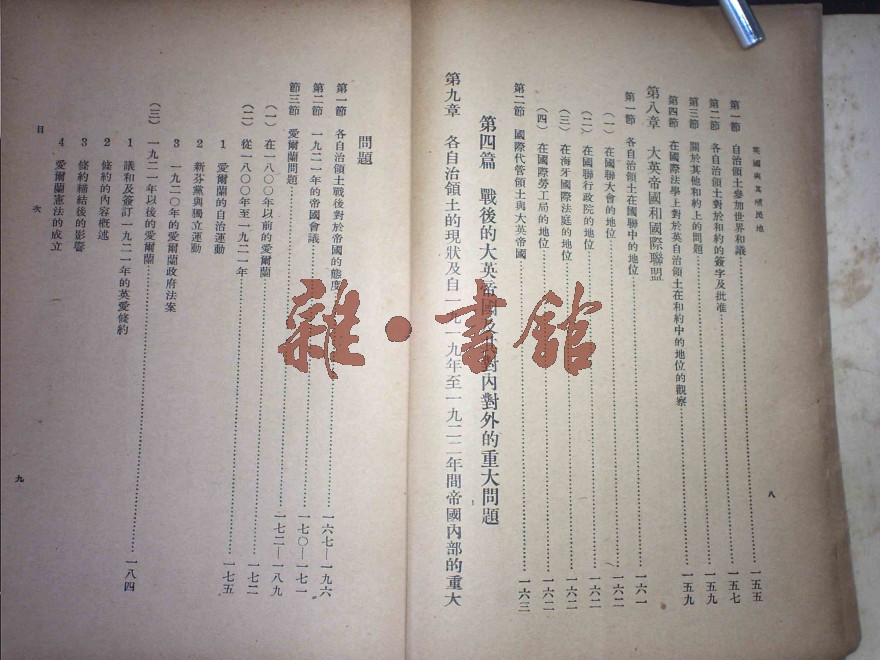 英國與其殖民地
第一節 自治領土參加世界和議……一五五
第二節 各自治領土對於和約的簽字及批准……一五七
第三節 關於其他和約上的問題……一五九
第四節 在國際法學上對於英自治領土在和約中的地位的觀察……一五九
第八章 大英帝國和國際聯盟
第一節 各自治領土在國聯中的地位……一六一
(一) 在國聯大會的地位……一六二
(二) 在國聯行政院的地位……一六二
(三) 在海牙國際法庭的地位……一六二
(四) 在國際勞工局的地位……一六二
第二節 國際代管領土與大英帝國……一六三
第四篇 戰後的大英帝國及其對內對外的重大問題
第九章 各自治領土的現狀及自一九一九年至一九二二年間帝國內部的重大
八
問題
第一節 各自治領土戰後對於帝國的態度……一六七—一九六
第二節 一九二一年的帝國會議……一七〇—一七一
節三節 愛爾蘭問題……一七二—一八九
(一) 在一八〇〇年以前的愛爾蘭……一七二
(二) 從一八〇〇年至一九二一年……一七五
1 愛爾蘭的自治運動
2 新芬黨與獨立運動
3 一九二〇年的愛爾蘭政府法案
(三) 一九二一年以後的愛爾蘭……一八四
1 議和及簽訂一九二一年的英愛條約
2 條約的內容概述
3 條約締結後的影響
4 愛爾蘭憲法的成立
目次
九
雜·書館